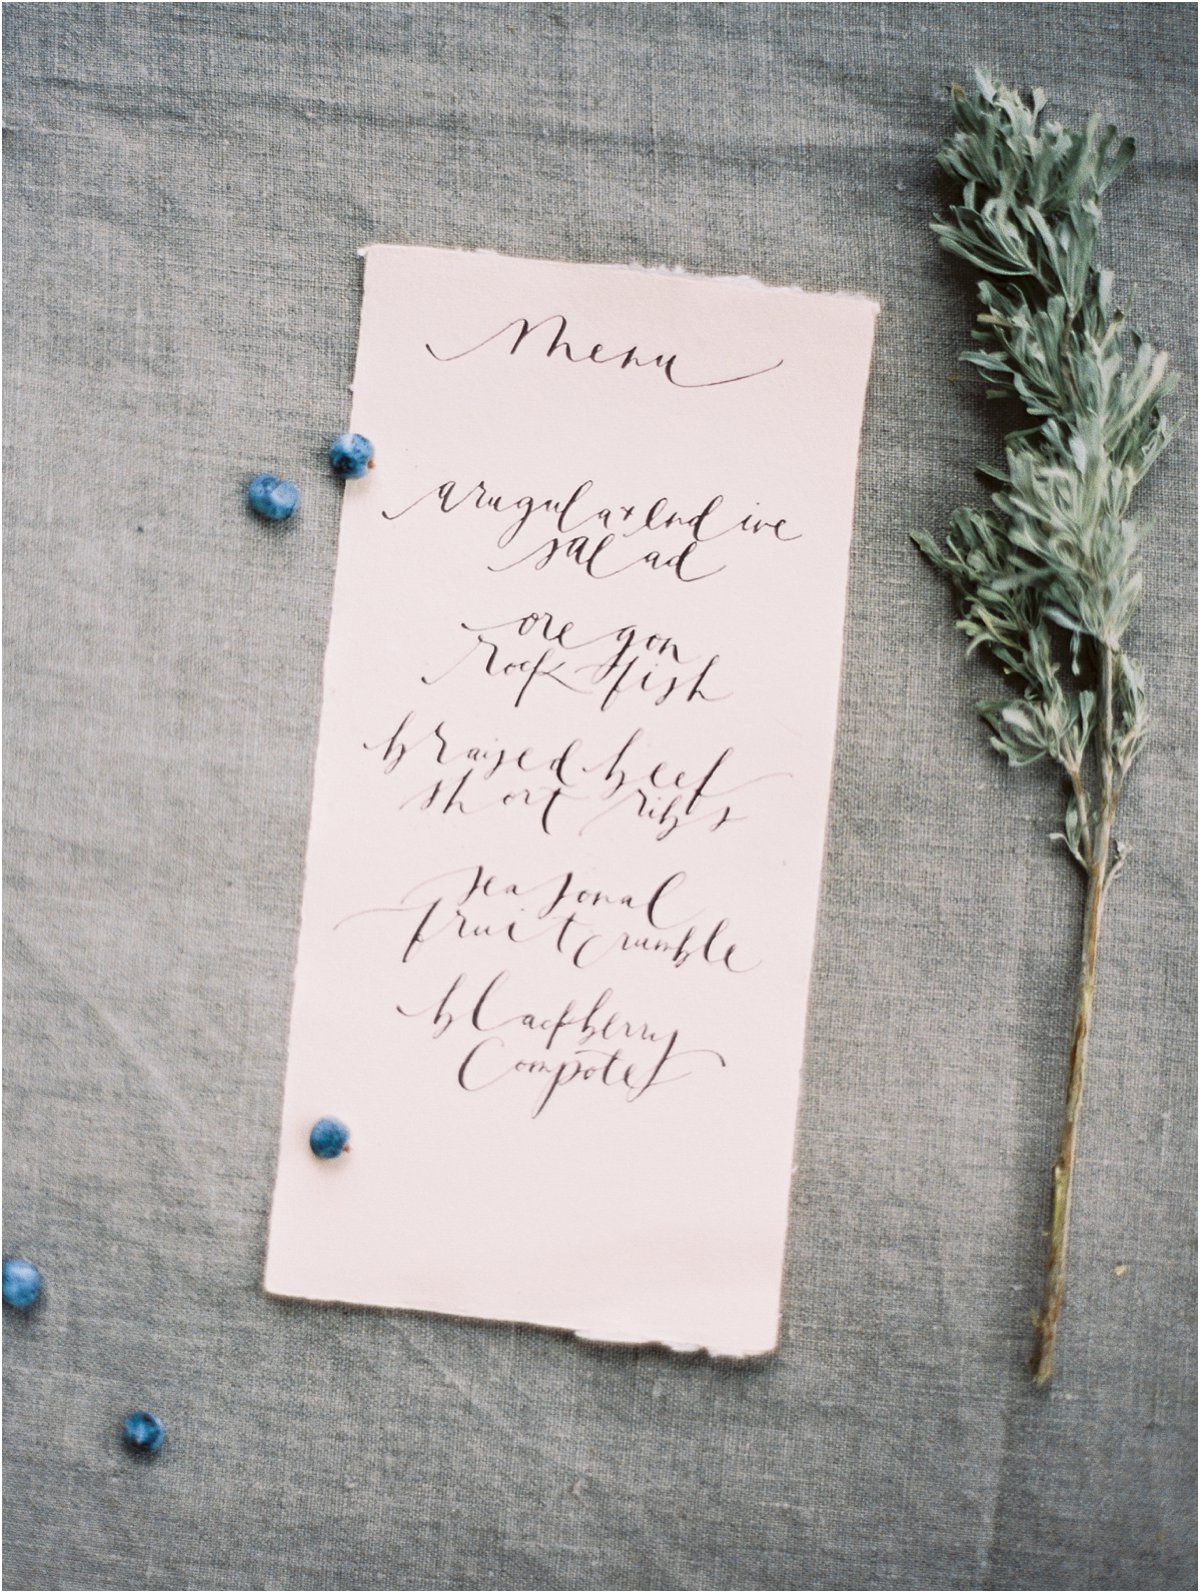 Menu
arugula + endive
salad
oregon
rock fish
braised beef
short ribs
seasonal
fruit crumble
blackberry
Compote